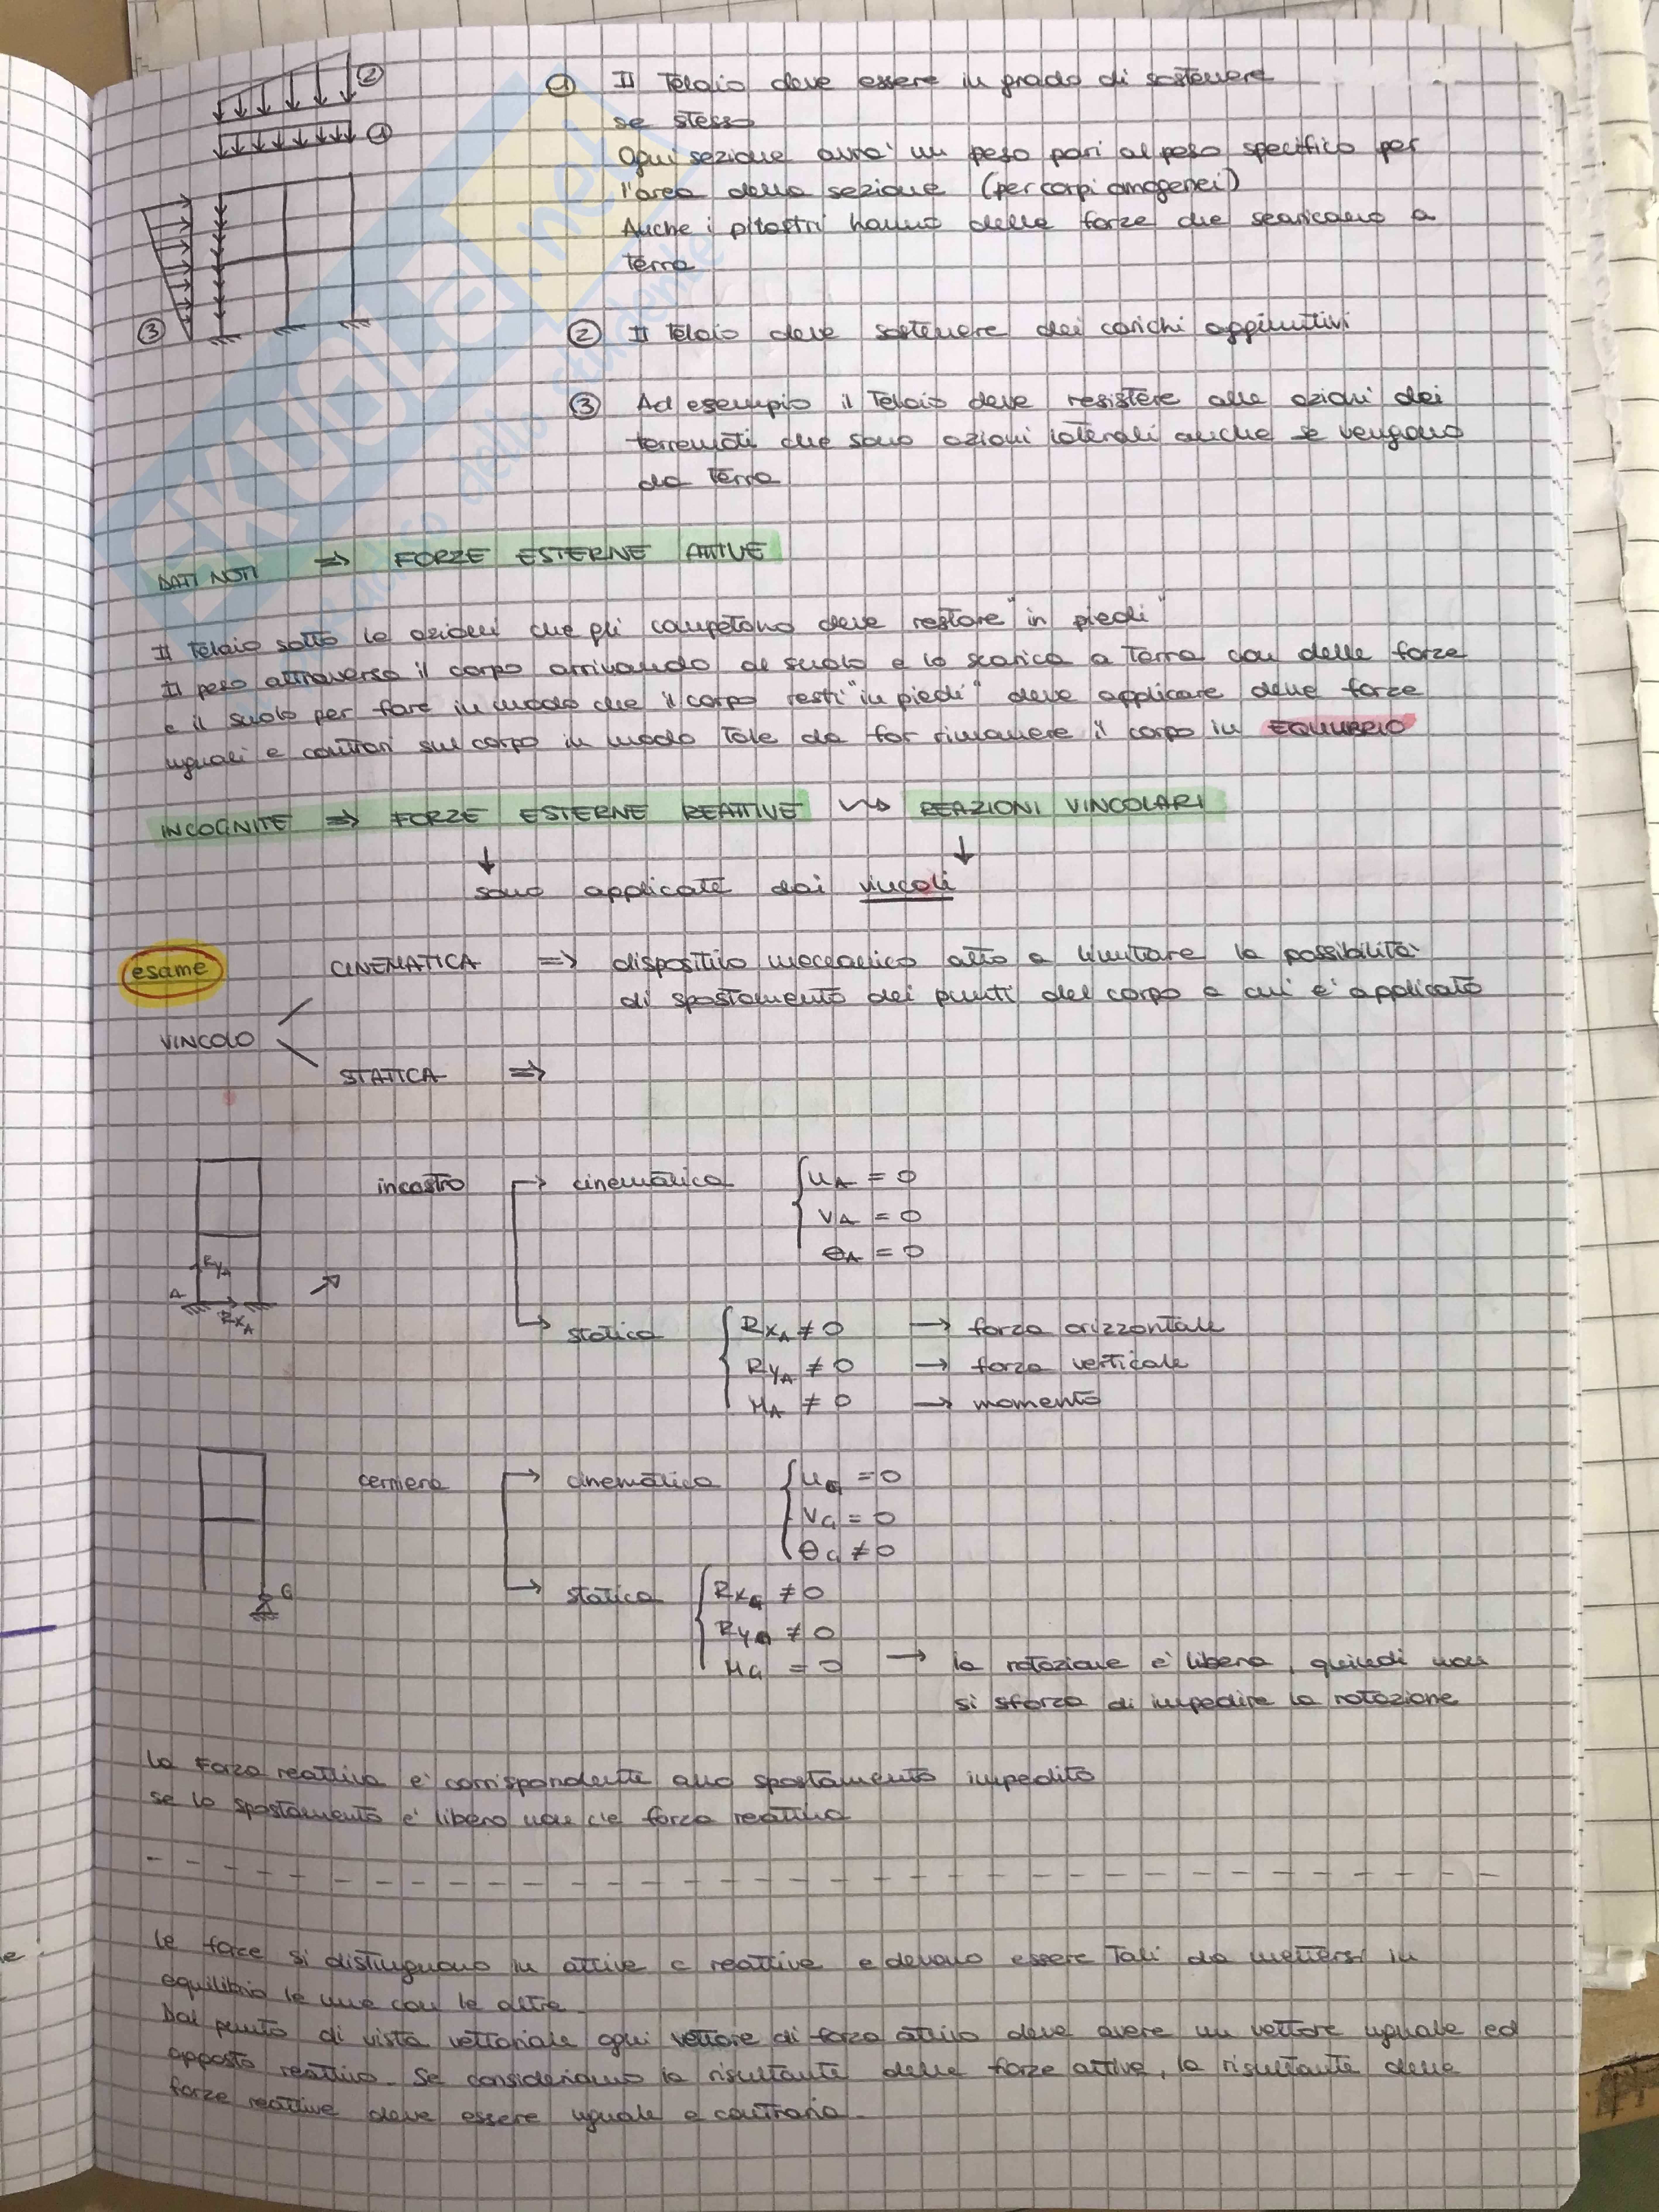 ② ① Il Telaio deve essere in grado di sostenere
① se stesso
Ogni sezione avra' un peso pari al peso specifico per
l'area della sezione (per corpi omogenei)
Anche i pilastri hanno delle forze che scaricano a
terra
③ ② Il Telaio deve sostenere dei carichi aggiuntivi
③ Ad esempio il Telaio deve resistere alle azioni dei
terremoti che sono azioni laterali anche se vengono
da terra
DATI NOTI ⇒ FORZE ESTERNE ATTIVE
Il Telaio sotto le azioni che gli competono deve restare "in piedi"
Il peso attraversa il corpo arrivando al suolo e lo scarica a terra con delle forze
e il suolo per fare in modo che il corpo resti "in piedi" deve applicare delle forze
uguali e contrari sul corpo in modo tale da far rimanere il corpo in EQUILIBRIO
INCOGNITE ⇒ FORZE ESTERNE REATTIVE ↝ REAZIONI VINCOLARI
↓ ↓
sono applicate dai vincoli
esame CINEMATICA ⇒ dispositivo meccanico atto a limitare la possibilità
di spostamento dei punti del corpo a cui e' applicato
VINCOLO
STATICA ⇒
incastro → cinematica { uA = 0
vA = 0
θA = 0
RyA
A RxA
→ statica { RxA ≠ 0 → forza orizzontale
RyA ≠ 0 → forza verticale
MA ≠ 0 → momento
cerniera → cinematica { uG = 0
vG = 0
θG ≠ 0
G → statica { RxG ≠ 0
RyG ≠ 0
MG = 0 → la rotazione e' libera, quindi non
si sforza di impedire la rotazione
La Forza reattiva e' corrispondente allo spostamento impedito
se lo spostamento e' libero non c'e forza reattiva
Le forze si distinguono in attive e reattive e devono essere tali da mettersi in
equilibrio le une con le altre.
Dal punto di vista vettoriale ogni vettore di forza attivo deve avere un vettore uguale ed
opposto reattivo. Se consideriamo la risultante delle forze attive, la risultante delle
forze reattive deve essere uguale e contraria.
SKUOLA.net